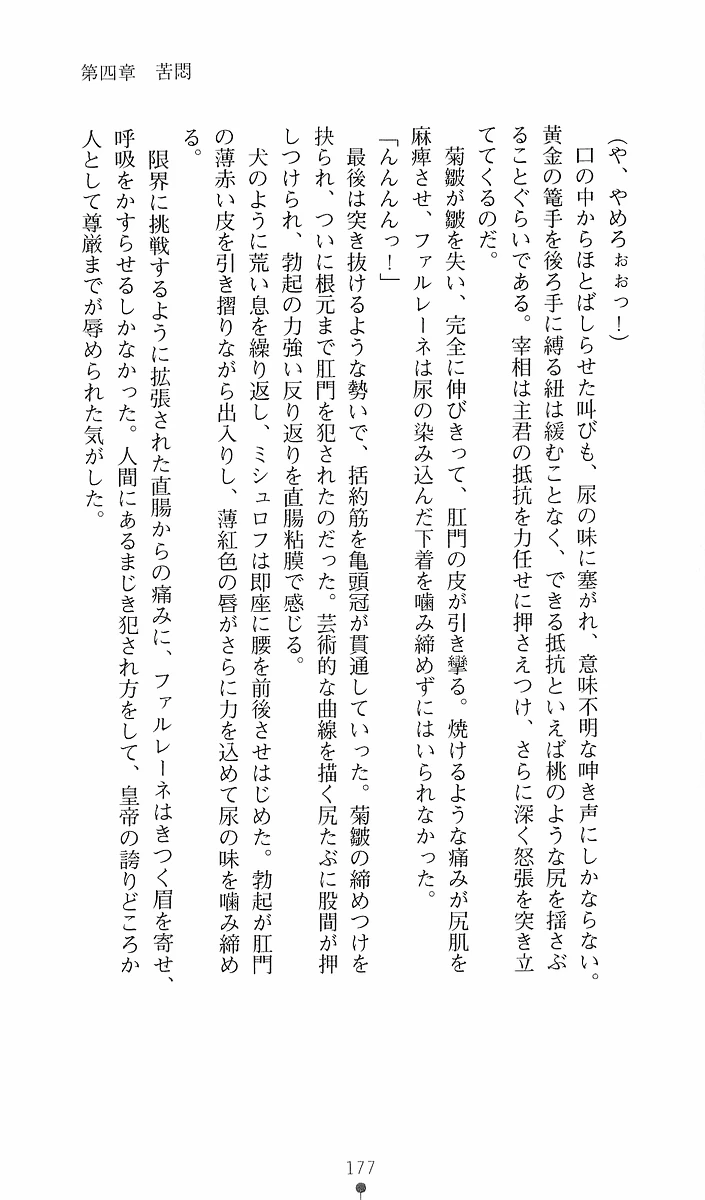 第四章　苦悶
(や、やめろぉぉっ！)
口の中からほとばしらせた叫びも、尿の味に塞がれ、意味不明な呻き声にしかならない。
黄金の篭手を後ろ手に縛る紐は緩むことなく、できる抵抗といえば桃のような尻を揺さぶ
ることぐらいである。宰相は主君の抵抗を力任せに押さえつけ、さらに深く怒張を突き立
ててくるのだ。
菊皺が皺を失い、完全に伸びきって、肛門の皮が引き攣る。焼けるような痛みが尻肌を
麻痺させ、ファルレーネは尿の染み込んだ下着を噛み締めずにはいられなかった。
「んんんんっ！」
最後は突き抜けるような勢いで、括約筋を亀頭冠が貫通していった。菊皺の締めつけを
抉られ、ついに根元まで肛門を犯されたのだった。芸術的な曲線を描く尻たぶに股間が押
しつけられ、勃起の力強い反り返りを直腸粘膜で感じる。
犬のように荒い息を繰り返し、ミシュロフは即座に腰を前後させはじめた。勃起が肛門
の薄赤い皮を引き摺りながら出入りし、薄紅色の唇がさらに力を込めて尿の味を噛み締め
る。
限界に挑戦するように拡張された直腸からの痛みに、ファルレーネはきつく眉を寄せ、
呼吸をかすらせるしかなかった。人間にあるまじき犯され方をして、皇帝の誇りどころか
人として尊厳までが辱められた気がした。
177